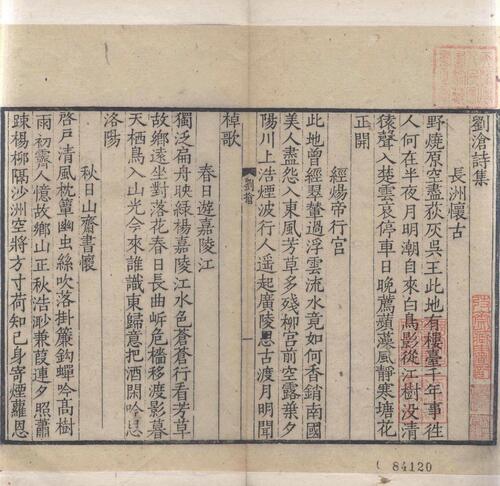 劉滄詩集
長洲懷古
野燒原空盡荻灰吳王此地有樓臺千年事徃
人何在半夜月明潮自來白鳥影從江樹没清
猨聲入楚雲哀停車日晚薦蘋藻風靜寒塘花
正開
經煬帝行宫
此地曾經翠輦過浮雲流水竟如何香銷南國
美人盡怨入東風芳草多殘柳宫前空露葉夕
陽川上浩煙波行人遥起廣陵思古渡月明聞
棹歌
劉滄
一
春日遊嘉陵江
獨泛扁舟映綠楊嘉陵江水色蒼蒼行看芳草
故鄉遠坐對落花春日長曲岓危檣移渡影暮
天栖鳥入山光今來誰識東歸意把酒閑吟思
洛陽
秋日山齋書懷
啓戸清風枕簟幽虫絲吹落挂簾鈎蟬吟髙樹
雨初霽人憶故鄉山正秋浩渺蒹葭連夕照蕭
踈楊柳隔沙洲空將方寸荷知己身寄煙蘿恩
84120